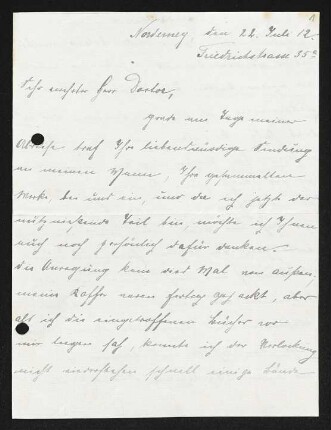 Norderney, den 22. Juli 12.
Friedrichstrasse 35
Sehr verehrter Herr Doctor,
gerade am Tage meiner
Abreise traf Ihre liebenswürdige Sendung
an meinen Mann, Ihre gesammelten
Werke, bei uns ein, und da ich jetzt der
teil bin, möchte ich Ihnen
auch noch persönlich dafür danken.
Die Anregung kam dies Mal von außen,
meine Koffer waren fertig gepackt, aber
als ich die eingetroffenen Bücher vor
mir liegen sah, konnte ich der Verlockung
nicht widerstehen schnell einige Bände